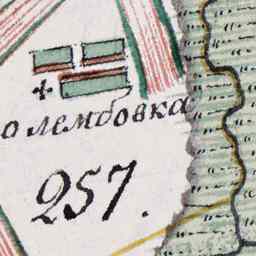 олембовка
257.